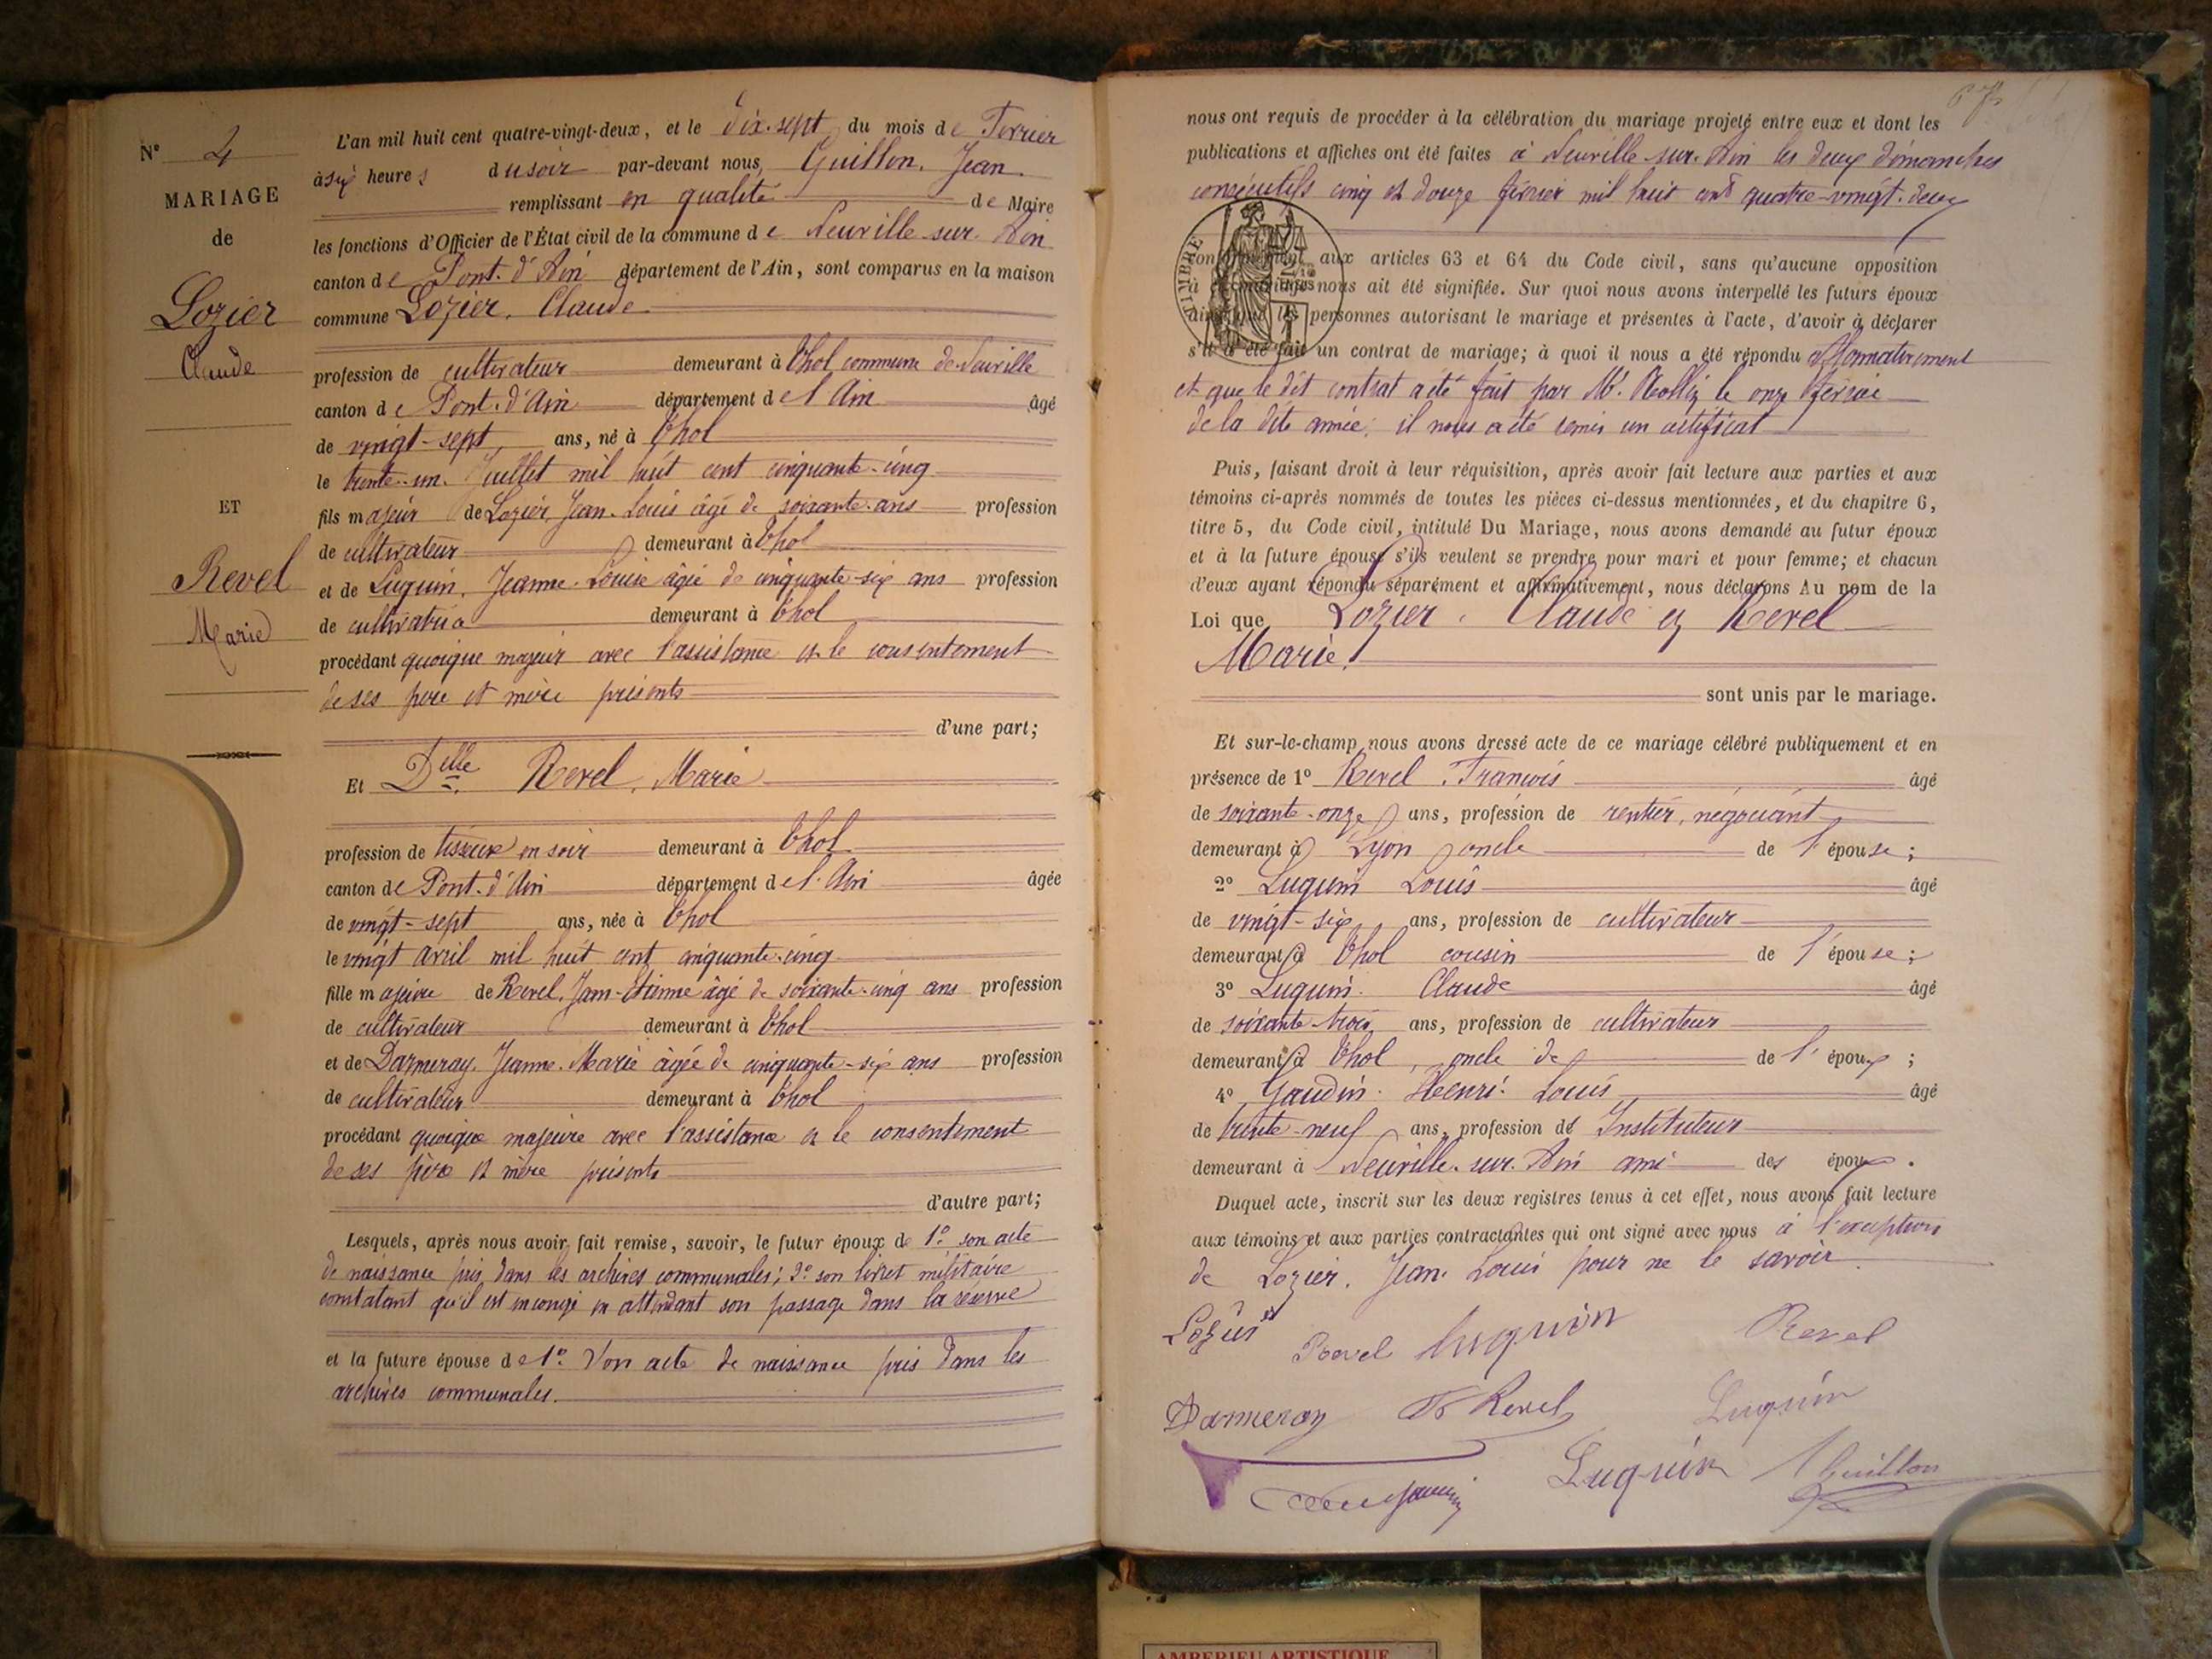 N° 4
MARIAGE
de
Lozier
Claude
ET
Revel
Marie
L'an mil huit cent quatre-vingt-deux, et le dix-sept du mois de Ferrier
à six heures du soir par-devant nous, Guillon, Jean.
remplissant en qualité de Maire
les fonctions d'Officier de l'État civil de la commune de Neuville-sur-Ain
canton de Pont-d'Ain département de l'Ain, sont comparus en la maison
commune Lozier, Claude
profession de cultivateur demeurant à Thol, commune de Neuville
canton de Pont-d'Ain département de l'Ain âgé
de vingt-sept ans, né à Thol
le trente-un Juillet mil huit cent cinquante-cinq
fils majeur de Lozier, Jean-Louis âgé de soixante ans profession
de cultivateur demeurant à Thol
et de Luquin, Jeanne-Louise âgée de cinquante-six ans profession
de cultivatrice demeurant à Thol
procédant quoique majeur avec l'assistance et le consentement
de ses père et mère présents
d'une part;
Et Delle Revel, Marie
profession de tisseuse en soie demeurant à Thol
canton de Pont-d'Ain département de l'Ain âgée
de vingt-sept ans, née à Thol
le vingt avril mil huit cent cinquante-cinq
fille majeure de Revel, Jean-Etienne âgé de soixante-cinq ans profession
de cultivateur demeurant à Thol
et de Darmeray, Jeanne-Marie âgée de cinquante-six ans profession
de cultivateur demeurant à Thol
procédant quoique majeure avec l'assistance et le consentement
de ses père et mère présents
d'autre part;
Lesquels, après nous avoir fait remise, savoir, le futur époux de 1° son acte
de naissance pris dans les archives communales; 2° son livret militaire
constatant qu'il est en congé en attendant son passage dans la réserve
et la future épouse de 1° son acte de naissance pris dans les
archives communales.
nous ont requis de procéder à la célébration du mariage projeté entre eux et dont les
publications et affiches ont été faites à Neuville-sur-Ain les deux dimanches
consécutifs cinq et douze février mil huit cent quatre-vingt-deux
TIMBRE
conformément aux articles 63 et 64 du Code civil, sans qu'aucune opposition
à ce mariage nous ait été signifiée. Sur quoi nous avons interpellé les futurs époux
ainsi que les personnes autorisant le mariage et présentes à l'acte, d'avoir à déclarer
s'il a été fait un contrat de mariage; à quoi il nous a été répondu affirmativement
et que le dit contrat a été fait par Me le onze février
de la dite année; il nous a été remis un certificat
Puis, faisant droit à leur réquisition, après avoir fait lecture aux parties et aux
témoins ci-après nommés de toutes les pièces ci-dessus mentionnées, et du chapitre 6,
titre 5, du Code civil, intitulé Du Mariage, nous avons demandé au futur époux
et à la future épouse s'ils veulent se prendre pour mari et pour femme; et chacun
d'eux ayant répondu séparément et affirmativement, nous déclarons Au nom de la
Loi que Lozier, Claude et Revel
Marie,
sont unis par le mariage.
Et sur-le-champ nous avons dressé acte de ce mariage célébré publiquement et en
présence de 1° Revel, François âgé
de soixante-onze ans, profession de rentier, négociant
demeurant à Lyon oncle de l'épouse;
2° Luquin Louis âgé
de vingt-six ans, profession de cultivateur
demeurant à Thol cousin de l'épouse;
3° Luquin Claude âgé
de soixante-trois ans, profession de cultivateur
demeurant à Thol, oncle de de l'époux;
4° Gaudin Henri-Louis âgé
de trente-neuf ans, profession de Instituteur
demeurant à Neuville-sur-Ain ami des époux.
Duquel acte, inscrit sur les deux registres tenus à cet effet, nous avons fait lecture
aux témoins et aux parties contractantes qui ont signé avec nous à l'exception
de Lozier, Jean-Louis pour ne le savoir.
Lozier Revel Luquin Revel
Darmeray Fs Revel Luquin
Luquin Guillon
AMBERIEU ARTISTIQUE